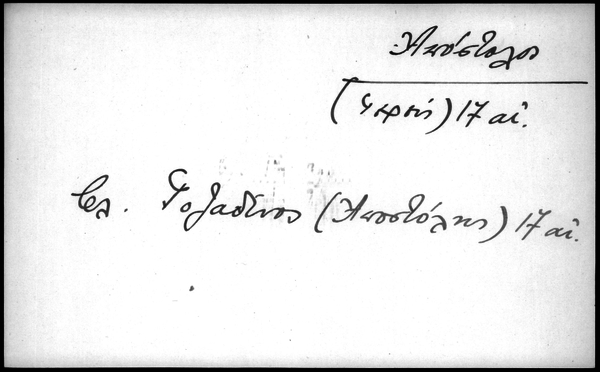 Ἀπόστολος
(ἱερεύς) 17 αἰ.
βλ. Γοζαδῖνος (Ἀποστόλης) 17 αἰ.